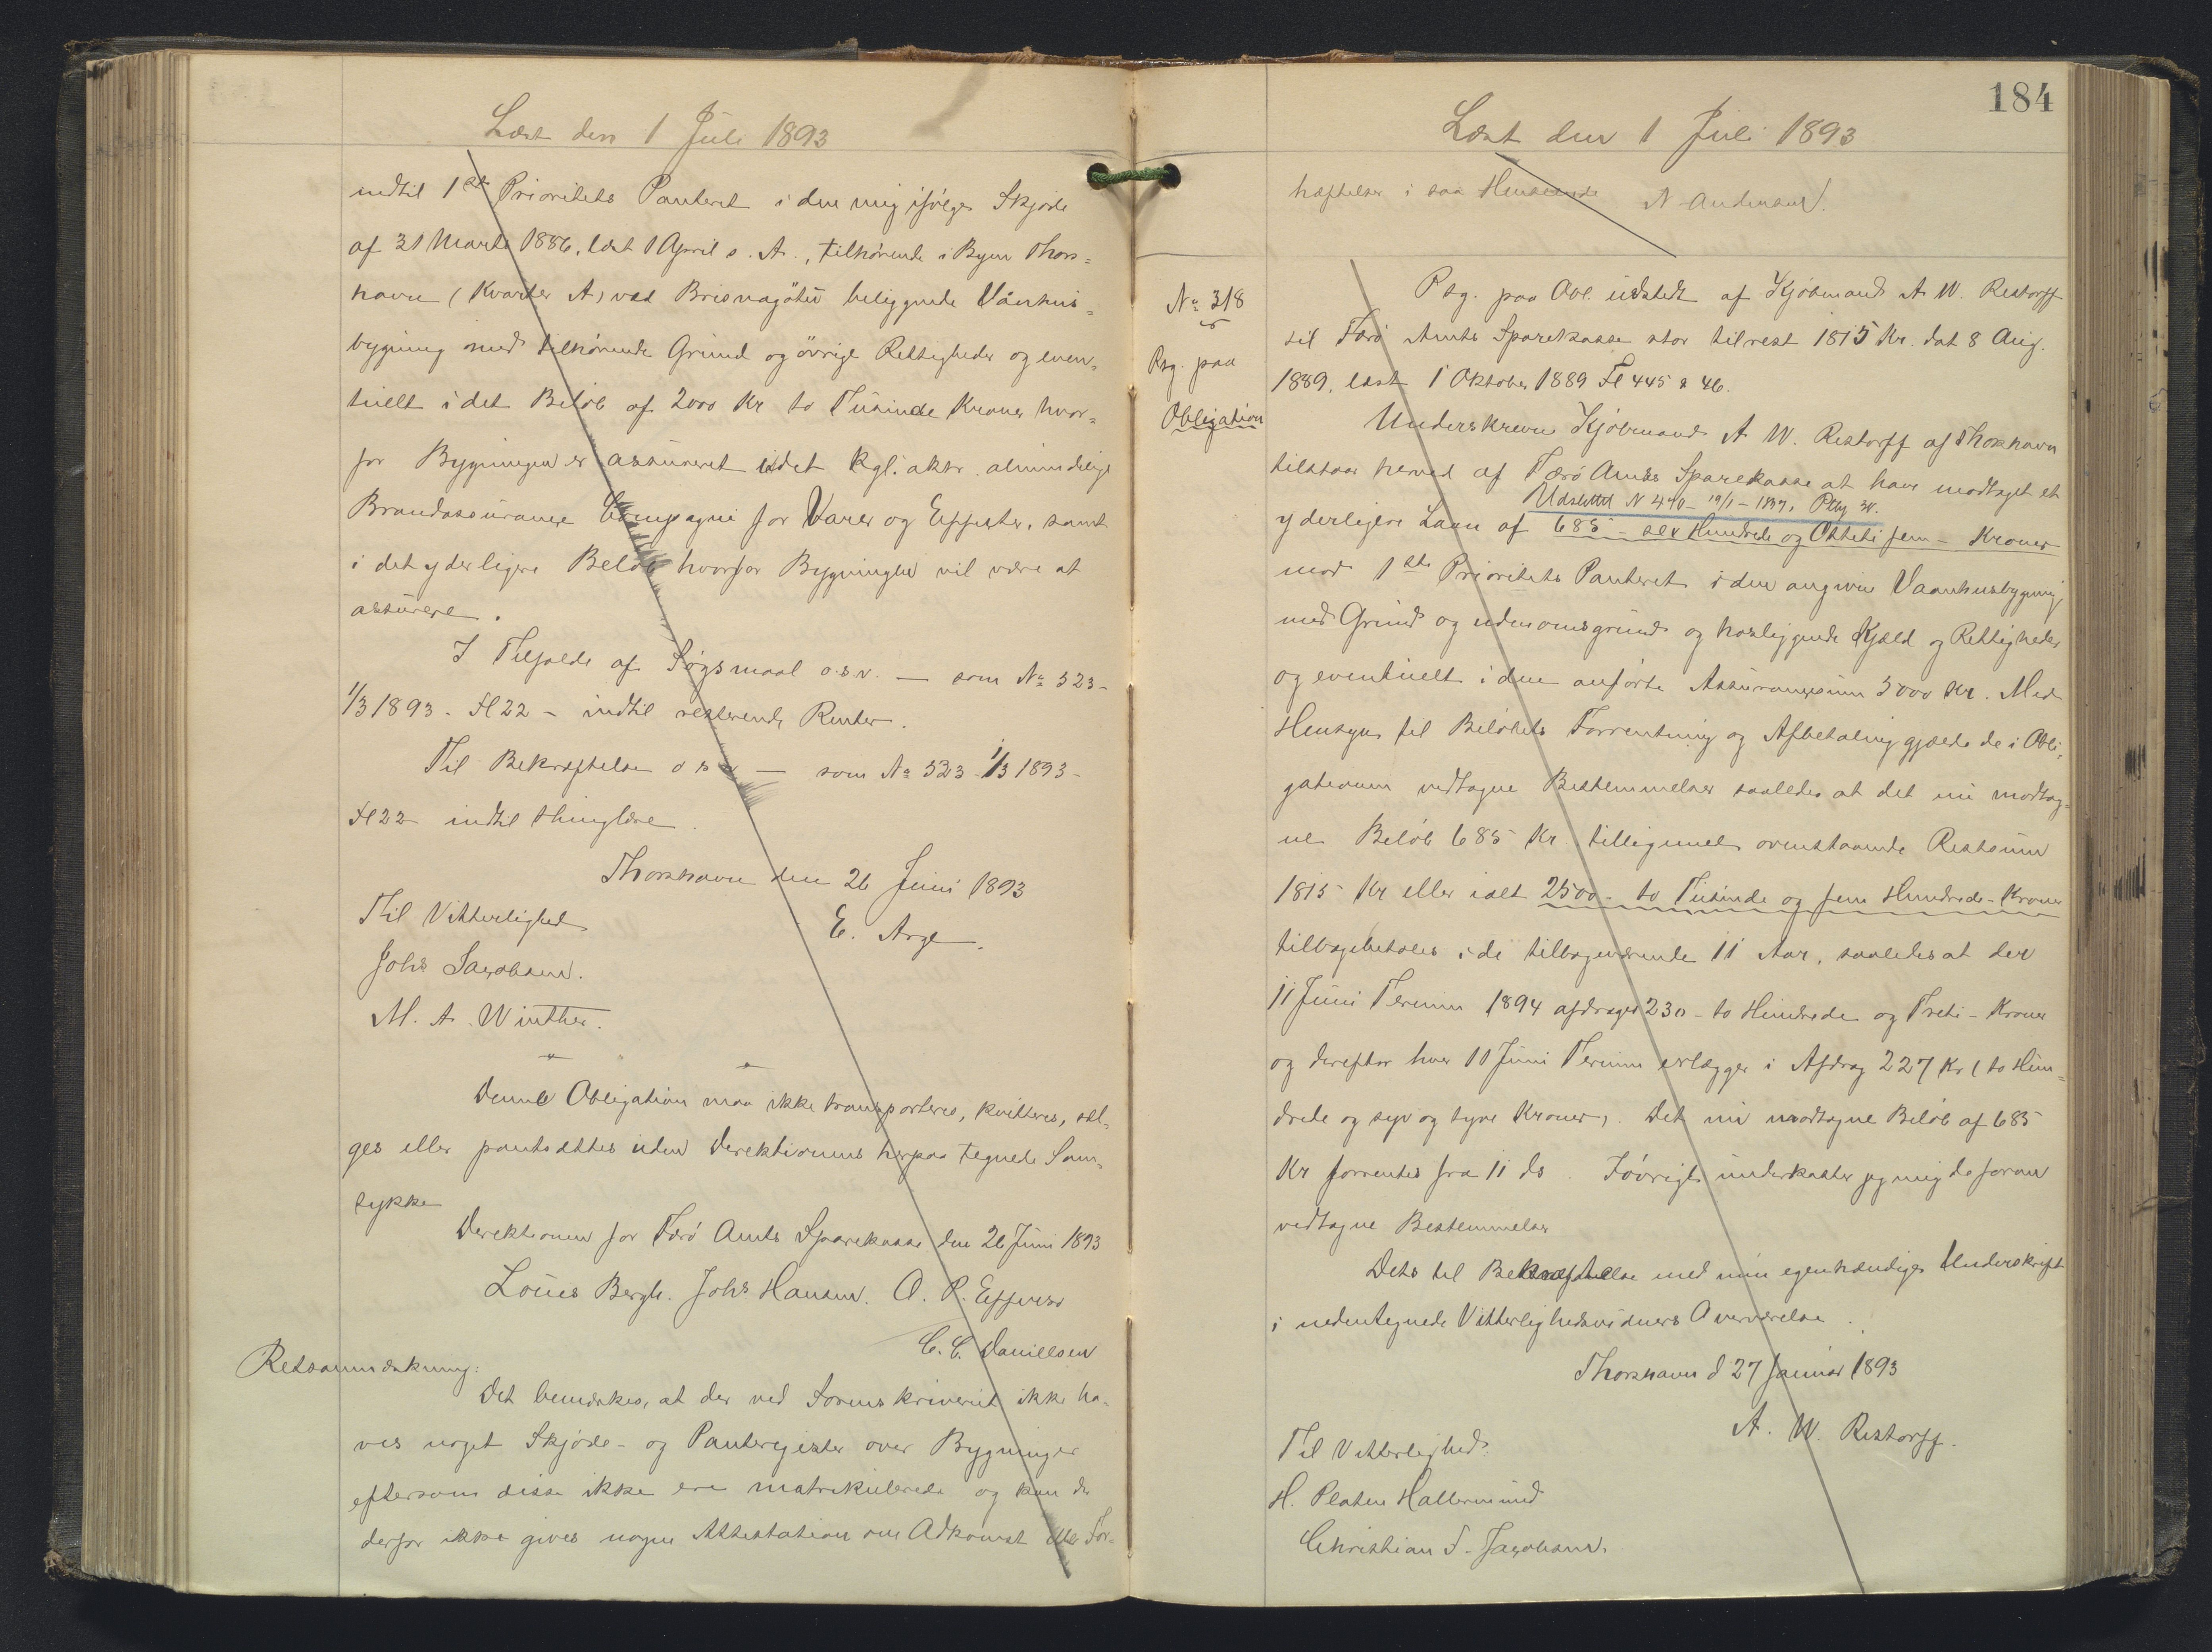 Læst den 1 Juli 1893
indtil 1ste Prioritets Panteret i den mig ifølge Skjøde
af 31 Marts 1886, læst 1 April s. A., tilhørende i Byen Thors=
havn (Kvarter A) ved Brisnagøtu beliggende Vaanhus=
bygning med tilhørende Grund og øvrige Rettigheder og even=
tuelt i det Beløb af 2000 Kr to Tusinde Kroner hvor=
for Bygningen er assureret i det Kgl. aktr. almindelige
Brandassurance Compagni for Varer og Effecter, samt
i det yderligere Beløb hvorfor Bygningen vil være at
assurere.
I Tilfælde af Søgsmaal o.s.v. — som No 323-
1/3 1893 - Fl 22 - indtil resterende Renter.
Til Bekræftelse o s v — som No 323 - 1/3 1893 -
Fl 22 indtil thinglæse.
Thorshavn den 26 Juni 1893
E. Arge.
Til Vitterlighed
Johs Jacobsen.
M. A. Winther.
Denne Obligation maa ikke transporteres, kvitteres, sæl-
ges eller pantsættes uden Direktionens herpaa tegnede Sam=
tykke
Direktionen for Færø Amts Sparekasse den 26 Juni 1893
Louis Bergh. Johs Hansen. O. P. Effersø
C. C. Danielsen
Retsanmærkning:
Det bemærkes, at der ved Sorenskriveriet ikke ha-
ves noget Skjøde- og Panteregister over Bygninger
eftersom disse ikke ere matrikulerede og kan der
derfor ikke gives nogen Attestation om Adkomst eller For=
184
Læst den 1 Juli 1893
hæftelser i saa Henseende N. Andersen.
No 318
Psg. paa
Obligation
Psg. paa Obl. udstedt af Kjøbmand A. W. Restorff
til Færø Amts Sparekasse stor tilrest 1815 Kr. dat 8 Aug.
1889, læst 1 Oktober 1889 Fl 445 & 46.
Underskrevne Kjøbmand A. W. Restorff af Thorshavn
tilstaar herved af Færø Amts Sparekasse at have modtaget et
Udslettet N 440 - 19/1 - 1897.
yderligere Laan af 685 - sex Hundrede og Ottetifem - Kroner
mod 1ste Prioritets Panteret i den angivne Vaanhusbygning
med Grund og udenomsgrund og hosliggende Kjæld og Rettigheder
og eventuelt i den anførte Assurancesum 5000 Kr. Med
Hensyn til Beløbets Forrentning og Afbetaling gjælde de i Obli=
gationen vedtagne Bestemmelser saaledes at det nu modtag=
ne Beløb 685 Kr tilligemed ovenstaaende Restsum
1815 Kr eller ialt 2500 - to Tusinde og fem Hundrede - Kroner
tilbagebetales i de tilbageværende 11 Aar, saaledes at der
11 Juni Termin 1894 afdrages 230 - to Hundrede og Treti - Kroner
og derefter hver 11 Juni Termin erlægges i Afdrag 227 Kr (to Hun=
drede og syv og tyve Kroner). Det nu modtagne Beløb af 685
Kr forrentes fra 11 ds. Iøvrigt underkaster jeg mig de foran
vedtagne Bestemmelser
Dets til Bekræftelse med min egenhændige Underskrift
i nedentegnede Vitterlighedsvidners Overværelse.
Thorshavn d 27 Januar 1893
A. W. Restorff.
Til Vitterlighed:
H. Platen Hallermund
Christian S. Jacobsen.